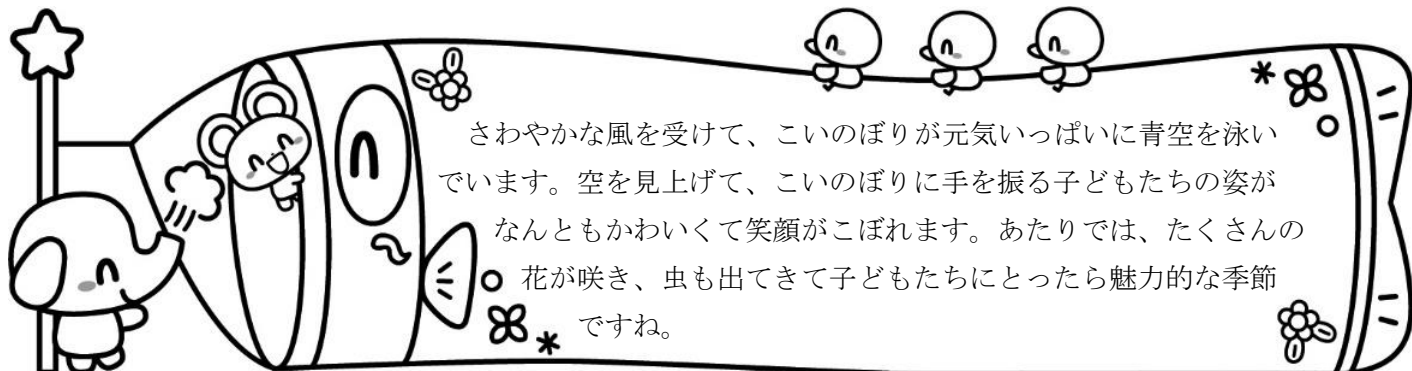 さわやかな風を受けて、こいのぼりが元気いっぱいに青空を泳い
でいます。空を見上げて、こいのぼりに手を振る子どもたちの姿が
なんともかわいくて笑顔がこぼれます。あたりでは、たくさんの
花が咲き、虫も出てきて子どもたちにとったら魅力的な季節
ですね。